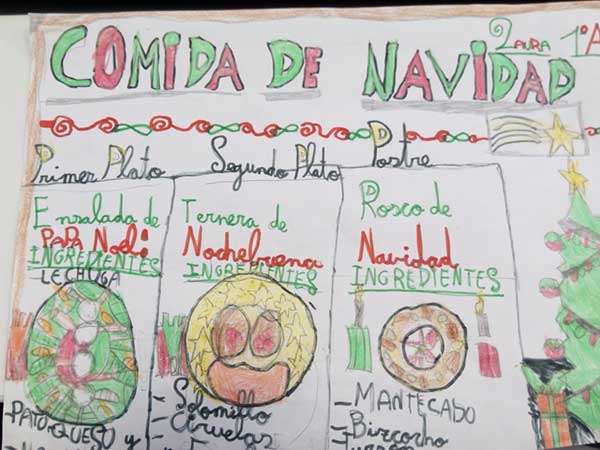 COMIDA DE NAVIDAD
LAURA 1ºA
Primer Plato
Segundo Plato
Postre
Ensalada de
PAPA Noel:
INGREDIENTES
LECHUGA
PATO, QUESO y
Ternera de
Nochebuena
INGREDIENTES
- Solomillo
- Ciruelas
Rosco de
Navidad
INGREDIENTES
- MANTECADO
- Bizcocho
- Turrón